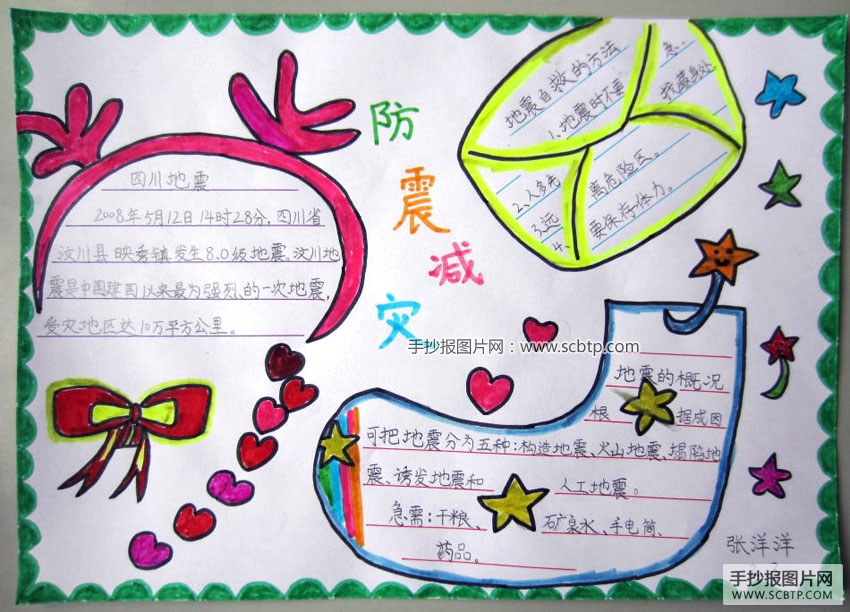 防震减灾
四川地震
2008年5月12日14时28分,四川省
汶川县映秀镇发生8.0级地震、汶川地
震是中国建国以来最为强烈的一次地震,
受灾地区达10万平方公里。
地震自救的方法
1.地震时不要
急、
2.人多先
找藏身处
3.远
离危险区。
4、
要保存体力。
地震的概况
根 据成因
可把地震分为五种:构造地震、火山地震、塌陷地
震、诱发地震和 人工地震。
急需:干粮、 矿泉水、手电筒、
药品。
张洋洋
手抄报图片网:www.scbtp.com
手抄报图片网
WWW.SCBTP.COM